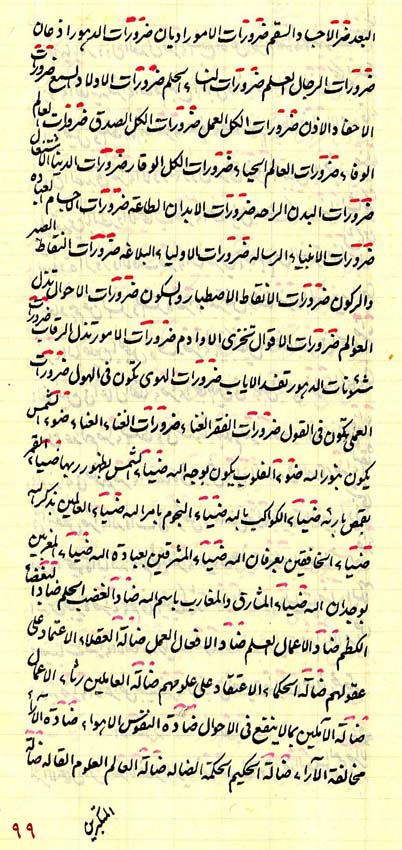 البعد ضر الاحباء و السقم ضرورات الامور اديان ضرورات الدهور اذعان
ضرورات الرجال العلم ضرورات النساء الحلم ضرورات الاولاد السمع ضرورات
الاحفاد الاذن ضرورات الكل العمل ضرورات الكل الصدق ضرورات العالم
الوفاء ضرورات العالم الحياء ضرورات الكل الوقار ضرورات الدنيا الاشتغال
ضرورات البدن الراحه ضرورات الابدان الطاعه ضرورات الاجسام العباده
ضرورات الانبياء الرساله ضرورات الاولياء البلاغه ضرورات النقاط الصبر
والركون ضرورات الانقاط الاصطبار و السكون ضرورات الاحوال تذل
العوالم ضرورات الاقوال تخزى الاوادم ضرورات الامور تذل الرقاب ضرورات
شئونات الدهور تفد الاياب ضرورات الهوى يكون فى الهول ضرورات
العمى يكون فى القول ضرورات الفقر الغناء ضرورات الغناء العناء ضوء الشمس
يكون بنور اله ضوء القلوب يكون بوجه اله ضياء الشمس بظهور ربها ضياء القمر
بقمص بارئه ضياء الكواكب باله ضياء النجوم بامر اله ضياء العالمين بذكر اله
ضياء الخافقين بعرفان اله ضياء المشرقين بعبادة اله ضياء المغربين
بوجدان اله ضياء المشارق والمغارب باسم اله ضاد الغضب الحلم ضاد البغضاء
الكظم ضاد الاعمال العلم ضاد الافعال العمل ضالة العقلاء الاعتماد على
عقولهم ضالة الحكماء الاعتقاد على علومهم ضالة العاملين رئاء الاعمال
ضالة الآملين بما لا ينفع فى الاحوال ضادة النفوس الاهواء ضادة الآراء
مخالفة الآراء ضالة الحكيم الحكمة الضاله ضالة العالم العلوم القاله ضالة
المتكبرين
٩٩